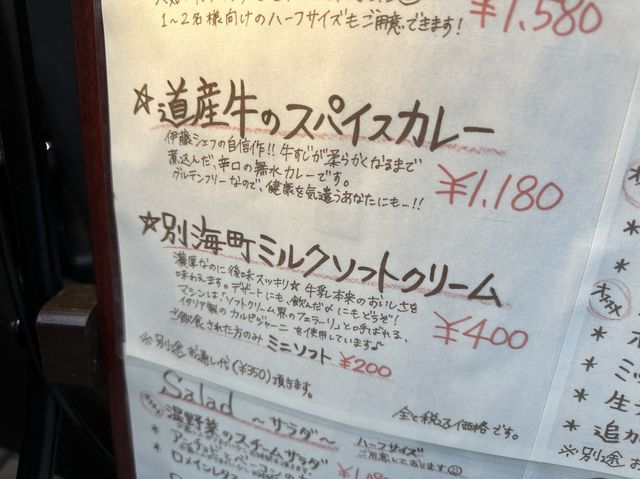 1〜2名様向けのハーフサイズもご用意できます!
¥1,580
☆道産牛のスパイスカレー
伊藤シェフの自信作!! 牛すじが柔らかくなるまで
煮込んだ、辛口の無水カレーです。
グルテンフリーなので、健康を気遣うあなたにも…!!
¥1,180
☆別海町ミルクソフトクリーム
濃厚なのに後味スッキリ☆ 牛乳本来のおいしさを
味わえます。デザートにも、飲んだ〆にもどうぞ!
マシンは「ソフトクリーム界のフェラーリ」と呼ばれる、
イタリア製のカルピジャーニを使用しています♪
¥400
☆飲食された方のみ ミニソフト ¥200
※別途お通し代(¥350)頂きます。
全て税込価格です。
Salad 〜サラダ〜
ハーフサイズ
ご用意しております☺
温野菜のスチームサラダ
オススメ
※別途お